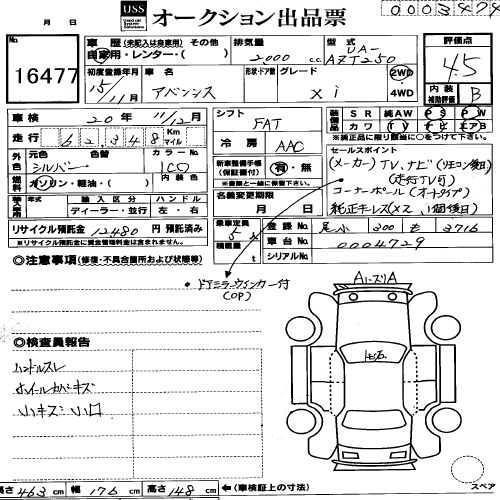 月 日 USS オークション出品票
0003474
No. 16477
車歴 (未記入は自家用) その他
自家用・レンタカー・( )
排気量 2000 c.c.
型式 UA- AZT250
評価点 4.5
初度登録年月 15/11月
車名 アベンシス
形状・ドア数 グレード Xi
2WD 4WD
内装 補助評価 B
車検 20年 11/12
シフト FAT
SR 純AW PS PW
カワ TV ナビ エアB
※純正品に限り装備品に○
走行 62,348 Km マイル
冷房 AAC
セールスポイント
(メーカー)TV、ナビ(リモコン後日)
(走行TV可)
コーナーポール(オートタイプ)
純正キーレス(×2、1個後日)
外色 元色 色替 シルバー
カラーNo. 1C0
燃料 ガソリン・軽油・( )
内装色
新車整備手帳(保証書付) 有・無
年式 輸入区分 ハンドル
ディーラー・並行 左・右
名義変更期限 月 日
リサイクル預託金 12480 円 預託済み
※リサイクル預託金に資金管理料金は含まれません。
乗車定員 5 人
積載量 t
登録No.
300
3716
車台No. 0004729
シリアルNo.
◎注意事項 (修復・不具合箇所および状態等)
・ドアミラーウィンカー付
(OP)
◎検査員報告
ハンドルスレ
ホイールカバーキズ
小キズ 小凹
長さ 463 cm 幅 176 cm 高さ 148 cm ←(車検証上の寸法)
スペア